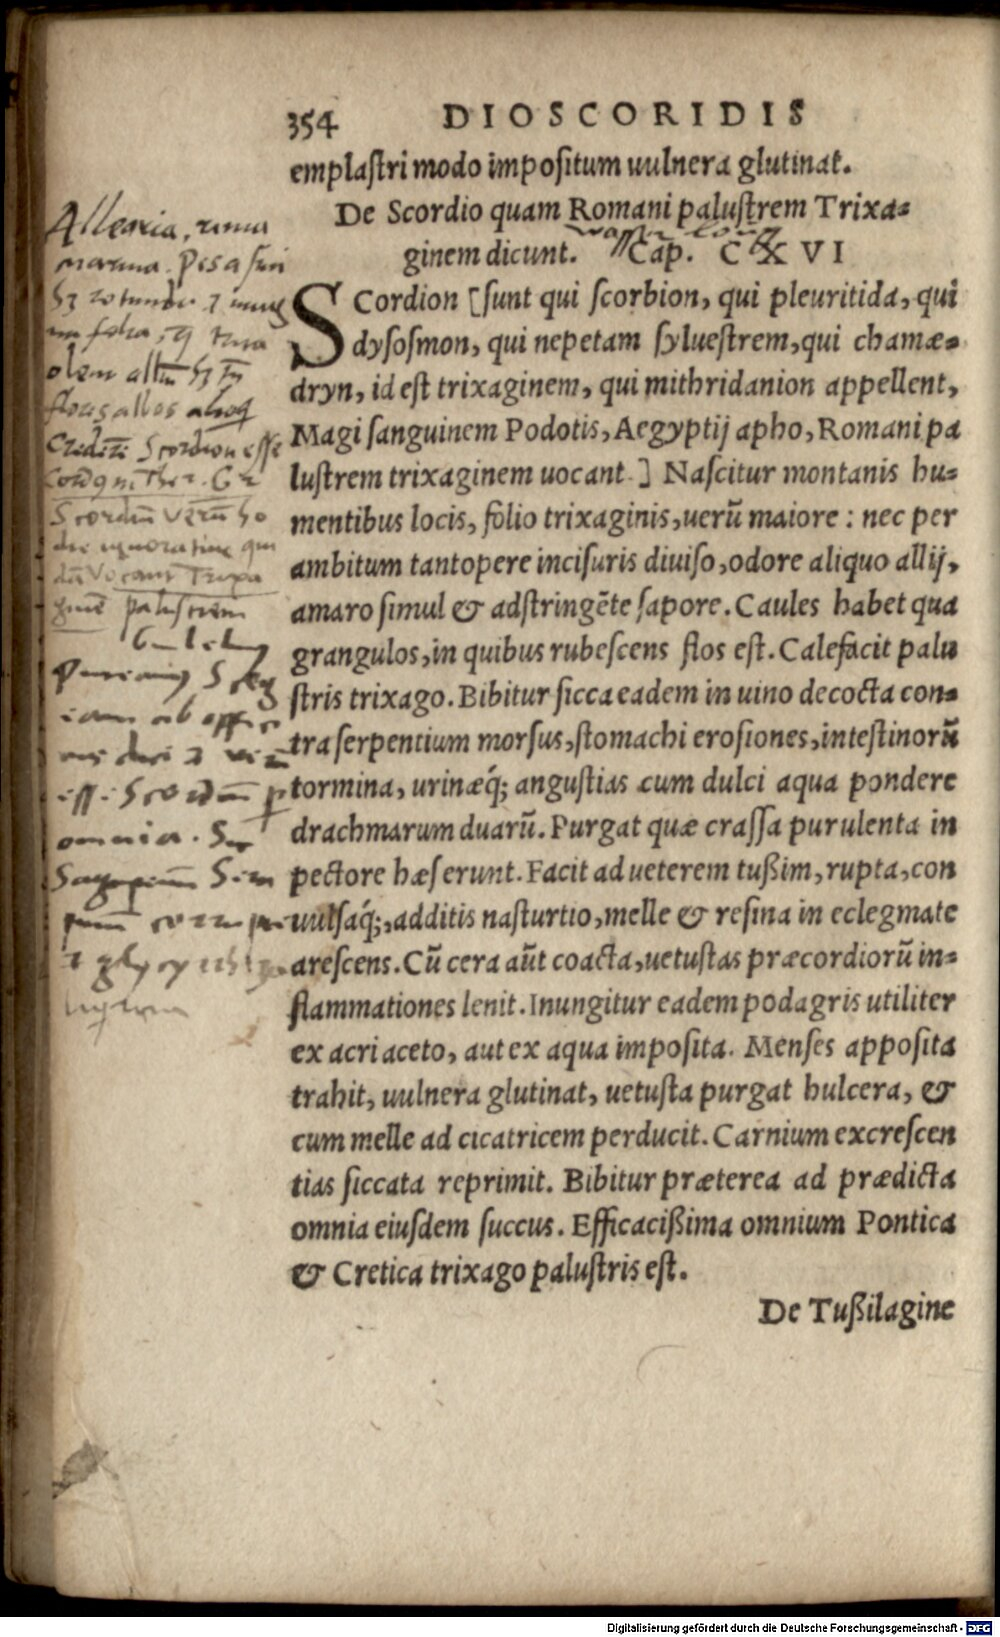 354 DIOSCORIDIS
emplaſtri modo impoſitum uulnera glutinat.
De Scordio quam Romani paluſtrem Trixa-
ginem dicunt. Cap. CXVI
SCordion [ſunt qui ſcorbion, qui pleuritida, qui
dysoſmon, qui nepetam ſylueſtrem, qui chamæ-
dryn, id eſt trixaginem, qui mithridanion appellent,
Magi ſanguinem Podotis, Aegyptij apho, Romani pa
luſtrem trixaginem uocant.] Naſcitur montanis hu-
mentibus locis, folio trixaginis, uerũ maiore: nec per
ambitum tantopere inciſuris diuiſo, odore aliquo allij,
amaro ſimul & adſtringẽte ſapore. Caules habet qua
grangulos, in quibus rubeſcens flos eſt. Calefacit palu
ſtris trixago. Bibitur ſicca eadem in uino decocta con-
tra ſerpentium morſus, ſtomachi eroſiones, inteſtinorũ
tormina, urinæq́; anguſtias cum dulci aqua pondere
drachmarum duarũ. Purgat quæ craſſa purulenta in
pectore hæſerunt. Facit ad ueterem tußim, rupta, con
uulſaq́;, additis naſturtio, melle & reſina in eclegmate
areſcens. Cũ cera aũt coacta, uetuſtas præcordiorũ in-
flammationes lenit. Inungitur eadem podagris utiliter
ex acri aceto, aut ex aqua impoſita. Menſes appoſita
trahit, uulnera glutinat, uetuſta purgat hulcera, &
cum melle ad cicatricem perducit. Carnium excreſcen
tias ſiccata reprimit. Bibitur præterea ad prædicta
omnia eiuſdem ſuccus. Efficacißima omnium Pontica
& Cretica trixago paluſtris eſt.
De Tußilagine
Allearia,
olem
flores albos
Scordion esse
Scordiũ verũ ho
die
palustrem
omnia.
Digitalisierung gefördert durch die Deutsche Forschungsgemeinschaft - DFG